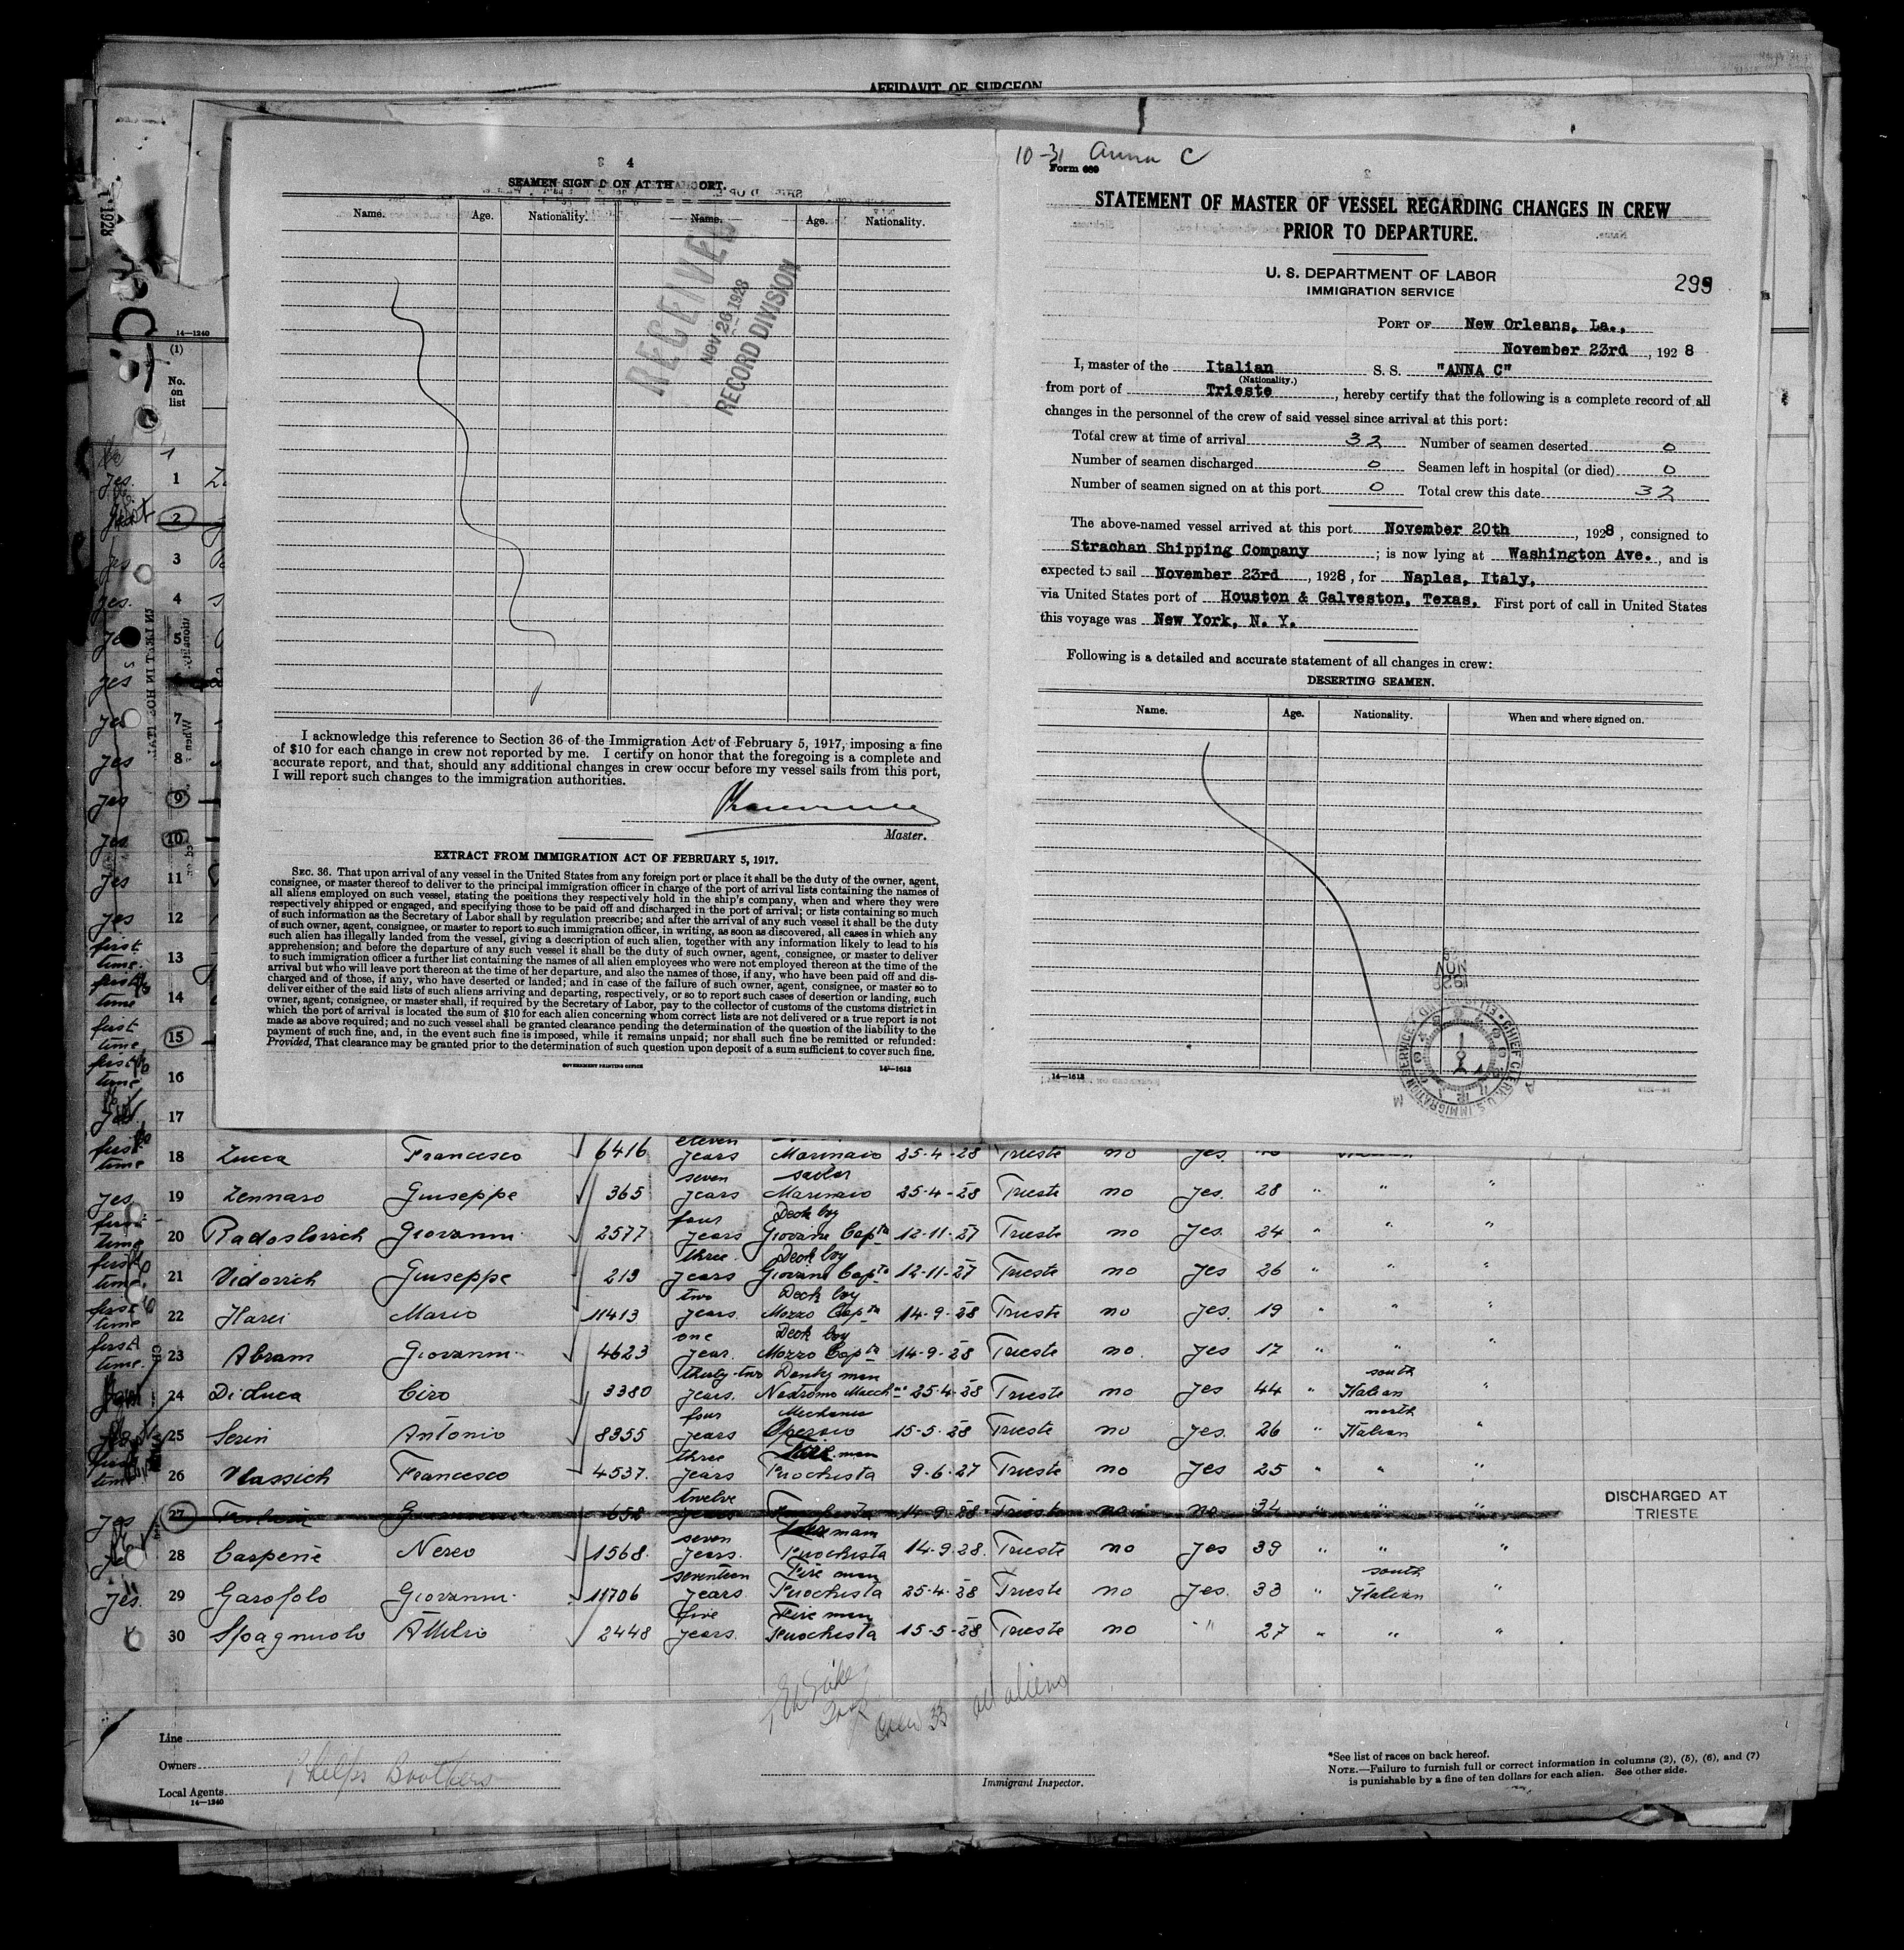 AFFIDAVIT OF SURGEON
3 4
SEAMEN SIGNED ON AT THAT PORT.
Name. Age. Nationality. Name. Age. Nationality.
RECEIVED
NOV 26 1928
RECORD DIVISION
I acknowledge this reference to Section 36 of the Immigration Act of February 5, 1917, imposing a fine
of $10 for each change in crew not reported by me. I certify on honor that the foregoing is a complete and
accurate report, and that, should any additional changes in crew occur before my vessel sails from this port,
I will report such changes to the immigration authorities.
Master.
EXTRACT FROM IMMIGRATION ACT OF FEBRUARY 5, 1917.
SEC. 36. That upon arrival of any vessel in the United States from any foreign port or place it shall be the duty of the owner, agent,
consignee, or master thereof to deliver to the principal immigration officer in charge of the port of arrival lists containing the names of
all aliens employed on such vessel, stating the positions they respectively hold in the ship's company, when and where they were
respectively shipped or engaged, and specifying those to be paid off and discharged in the port of arrival; or lists containing so much
of such information as the Secretary of Labor shall by regulation prescribe; and after the arrival of any such vessel it shall be the duty
of such owner, agent, consignee, or master to report to such immigration officer, in writing, as soon as discovered, all cases in which any
such alien has illegally landed from the vessel, giving a description of such alien, together with any information likely to lead to his
apprehension; and before the departure of any such vessel it shall be the duty of such owner, agent, consignee, or master to deliver
to such immigration officer a further list containing the names of all alien employees who were not employed thereon at the time of the
arrival but who will leave port thereon at the time of her departure, and also the names of those, if any, who have been paid off and dis-
charged and of those, if any, who have deserted or landed; and in case of the failure of such owner, agent, consignee, or master so to
deliver either of the said lists of such aliens arriving and departing, respectively, or so to report such cases of desertion or landing, such
owner, agent, consignee, or master shall, if required by the Secretary of Labor, pay to the collector of customs of the customs district in
which the port of arrival is located the sum of $10 for each alien concerning whom correct lists are not delivered or a true report is not
made as above required; and no such vessel shall be granted clearance pending the determination of the question of the liability to the
payment of such fine, and, in the event such fine is imposed, while it remains unpaid; nor shall such fine be remitted or refunded:
Provided, That clearance may be granted prior to the determination of such question upon deposit of a sum sufficient to cover such fine.
GOVERNMENT PRINTING OFFICE 14—1613
10-31 Anna C
Form 689
STATEMENT OF MASTER OF VESSEL REGARDING CHANGES IN CREW
PRIOR TO DEPARTURE.
U. S. DEPARTMENT OF LABOR
IMMIGRATION SERVICE
299
PORT OF New Orleans, La.,
November 23rd, 1928
I, master of the Italian S. S. "ANNA C"
(Nationality.)
from port of Trieste, hereby certify that the following is a complete record of all
changes in the personnel of the crew of said vessel since arrival at this port:
Total crew at time of arrival 32 Number of seamen deserted 0
Number of seamen discharged 0 Seamen left in hospital (or died) 0
Number of seamen signed on at this port 0 Total crew this date 32
The above-named vessel arrived at this port November 20th, 1928, consigned to
Strachan Shipping Company; is now lying at Washington Ave., and is
expected to sail November 23rd, 1928, for Naples, Italy,
via United States port of Houston & Galveston, Texas. First port of call in United States
this voyage was New York, N. Y.
Following is a detailed and accurate statement of all changes in crew:
DESERTING SEAMEN.
Name. Age. Nationality. When and where signed on.
14—1613
CHIEF CLERK U.S. IMMIGRATION SERVICE
14—1240
(1)
No.
on
list
yes 1
2
yes 3
yes. 4
5
yes
yes 7
yes 8
yes 9
yes 10
yes 11
yes 12
first time. 13
first time 14
first time 15
first time 16
yes 17
first time 18 Zucca Francesco 6416 eleven years Marinaio 25-4-28 Trieste no yes.
yes. 19 Zennaro Giuseppe 365 seven years sailor Marinaio 25-4-28 Trieste no yes. 28 " " "
first time 20 Radoslovich Giovanni 2577 four years Deck boy Giovane Copta 12-11-27 Trieste no yes. 24 " " "
first time. 21 Vidovich Giuseppe 213 three years Deck boy Giovane Copta 12-11-27 Trieste no yes 26 " " "
first time 22 Harei Mario 11413 two years. Deck boy Mozzo Copta 14-9-28 Trieste no yes. 19 " " "
first time. 23 Abram Giovanni 4623 one year. Deck boy Mozzo Copta 14-9-28 Trieste no. yes 17 " " "
24 Di Luca Ciro 3380 thirty-two years. Donkey man 25-4-28 Trieste no yes 44 " south Italian "
25 Serin Antonio 8355 four years Mechanic Operaio 15-5-28 Trieste no yes. 26 " north Italian "
first time. 26 Vlassich Francesco 4537. three years Fire man Fuochista 9-6-27 Trieste no yes 25 " " "
yes 27 658 twelve years 14-9-28 Trieste no no 34 " " " DISCHARGED AT TRIESTE
yes 28 Carpenè Nereo 1568. seven years. Fire man Fuochista 14-9-28. Trieste no yes 39 " " "
yes. 29 Garofolo Giovanni 11706 seventeen years Fire man Fuochista 25-4-28 Trieste no yes. 33 " south Italian "
30 Spagnuolo Attilio 2448 five years. Fire man Fuochista 15-5-28 Trieste no " 27 " " "
Crew 33 all aliens
Line
Owners
Phelps Brothers
Local Agents
14—1240
Immigrant Inspector.
*See list of races on back hereof.
NOTE.—Failure to furnish full or correct information in columns (2), (5), (6), and (7)
is punishable by a fine of ten dollars for each alien. See other side.